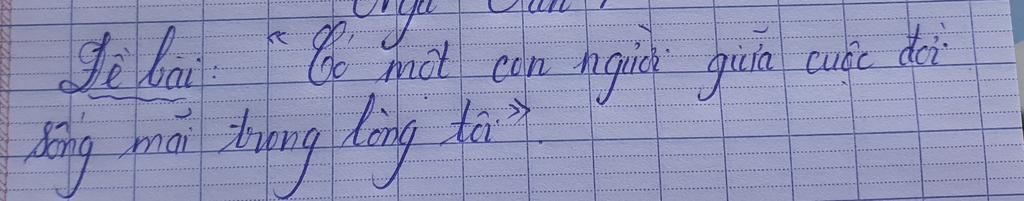 Đề bài: "Có một con người giữa cuộc đời
sống mãi trong lòng tôi"